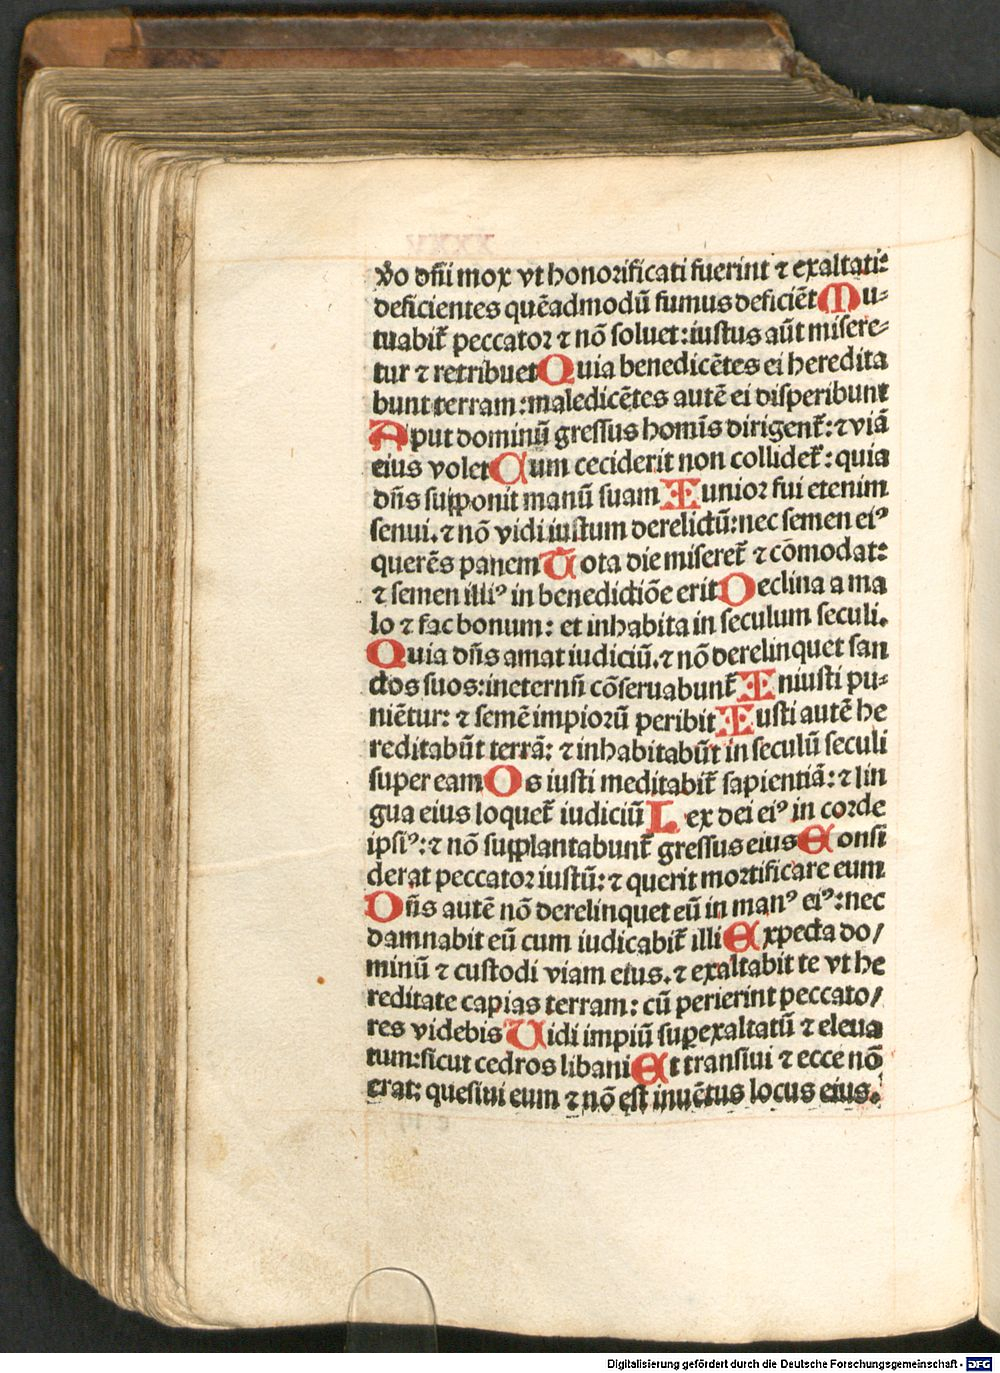 XXXV
v̾o dñi mox vt honorificati fuerint ⁊ exaltati:
deficientes quēadmodū fumus deficiēt Mu⸗
tuabit̃ peccatoꝛ ⁊ nō soluet: iustus aūt misere⸗
tur ⁊ retribuet Quia benedicētes ei heredita
bunt terram: maledicētes autē ei disperibunt
Aput dominū gressus homīs dirigent̃: ⁊ viā
eius volet Cum ceciderit non collidet̃: quia
dñs supponit manū suam Iunioꝛ fui etenim
senui. ⁊ nō vidi iustum derelictū: nec semen eiꝰ
querēs panem Tota die miseret̃ ⁊ cōmodat:
⁊ semen illiꝰ in benedictiōe erit Declina a ma
lo ⁊ fac bonum: et inhabita in seculum seculi.
Quia dñs amat iudiciū. ⁊ nō derelinquet san
ctos suos: in eternū cōseruabunt̃ Iniusti pu⸗
niētur: ⁊ semē impioꝛū peribit Iusti autē he
reditabūt terrā: ⁊ inhabitabūt in seculū seculi
super eam Os iusti meditabit̃ sapientiā: ⁊ lin
gua eius loquet̃ iudiciū Lex dei eiꝰ in corde
ipsiꝰ: ⁊ nō supplantabunt̃ gressus eius Consi
derat peccatoꝛ iustū: ⁊ querit moꝛtificare eum
Dñs autē nō derelinquet eū in manꝰ eiꝰ: nec
damnabit eū cum iudicabit̃ illi Expecta do/
minū ⁊ custodi viam eius. ⁊ exaltabit te vt he
reditate capias terram: cū perierint peccato/
res videbis Uidi impiū suꝑexaltatū ⁊ eleua
tum: sicut cedros libani Et transiui ⁊ ecce nō
erat: quesiui eum ⁊ nō est inuētus locus eius.
Digitalisierung gefördert durch die Deutsche Forschungsgemeinschaft - DFG